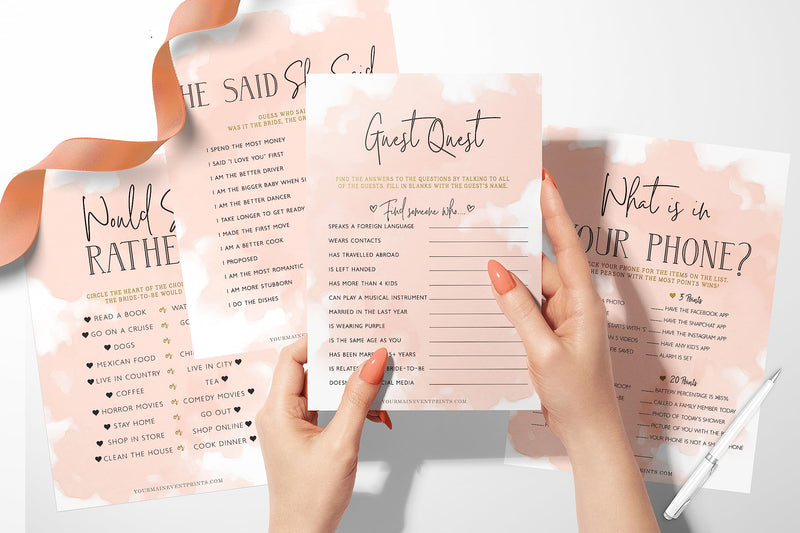 HE SAID She Said
GUESS WHO SAI
WAS IT THE BRIDE, THE GR
I SPEND THE MOST MONEY
I SAID "I LOVE YOU" FIRST
I AM THE BETTER DRIVER
I AM THE BIGGER BABY WHEN SI
I AM THE BETTER DANCER
I TAKE LONGER TO GET READY
I MADE THE FIRST MOVE
I AM A BETTER COOK
I PROPOSED
I AM THE MOST ROMANTIC
I AM MORE STUBBORN
I DO THE DISHES
YOURMAINEV
Would S
RATHE
CIRCLE THE HEART OF THE CHO
THE BRIDE-TO-BE WOULD
READ A BOOK or WAT
GO ON A CRUISE or
DOGS or
MEXICAN FOOD or CHI
LIVE IN COUNTRY or LIVE IN CITY
COFFEE or TEA
HORROR MOVIES or COMEDY MOVIES
STAY HOME or GO OUT
SHOP IN STORE or SHOP ONLINE
CLEAN THE HOUSE or COOK DINNER
YOURMAINEVENTPRINTS.COM
Guest Quest
FIND THE ANSWERS TO THE QUESTIONS BY TALKING TO ALL
OF THE GUESTS. FILL IN BLANKS WITH THE GUEST'S NAME.
Find someone who....
SPEAKS A FOREIGN LANGUAGE
WEARS CONTACTS
HAS TRAVELLED ABROAD
IS LEFT HANDED
HAS MORE THAN 4 KIDS
CAN PLAY A MUSICAL INSTRUMENT
MARRIED IN THE LAST YEAR
IS WEARING PURPLE
IS THE SAME AGE AS YOU
HAS BEEN MARR 5+ YEARS
IS RELATE BRIDE-TO-BE
DOESN IAL MEDIA
YOURMAINEVENTPRINTS.COM
What is in
YOUR PHONE?
CK YOUR PHONE FOR THE ITEMS ON THE LIST.
HE PERSON WITH THE MOST POINTS WINS!
5 Points
PHOTO HAVE THE FACEBOOK APP
HAVE THE SNAPCHAT APP
STARTS WITH 'S' HAVE THE INSTAGRAM APP
5 VIDEOS HAVE ANY KID'S APP
FIE SAVED ALARM IS SET
20 Points
BATTERY PERCENTAGE IS >85%
CALLED A FAMILY MEMBER TODAY
PHOTO OF TODAY'S SHOWER
PICTURE OF YOU WITH THE B
YOUR PHONE IS NOT A SM
PRINTS.COM